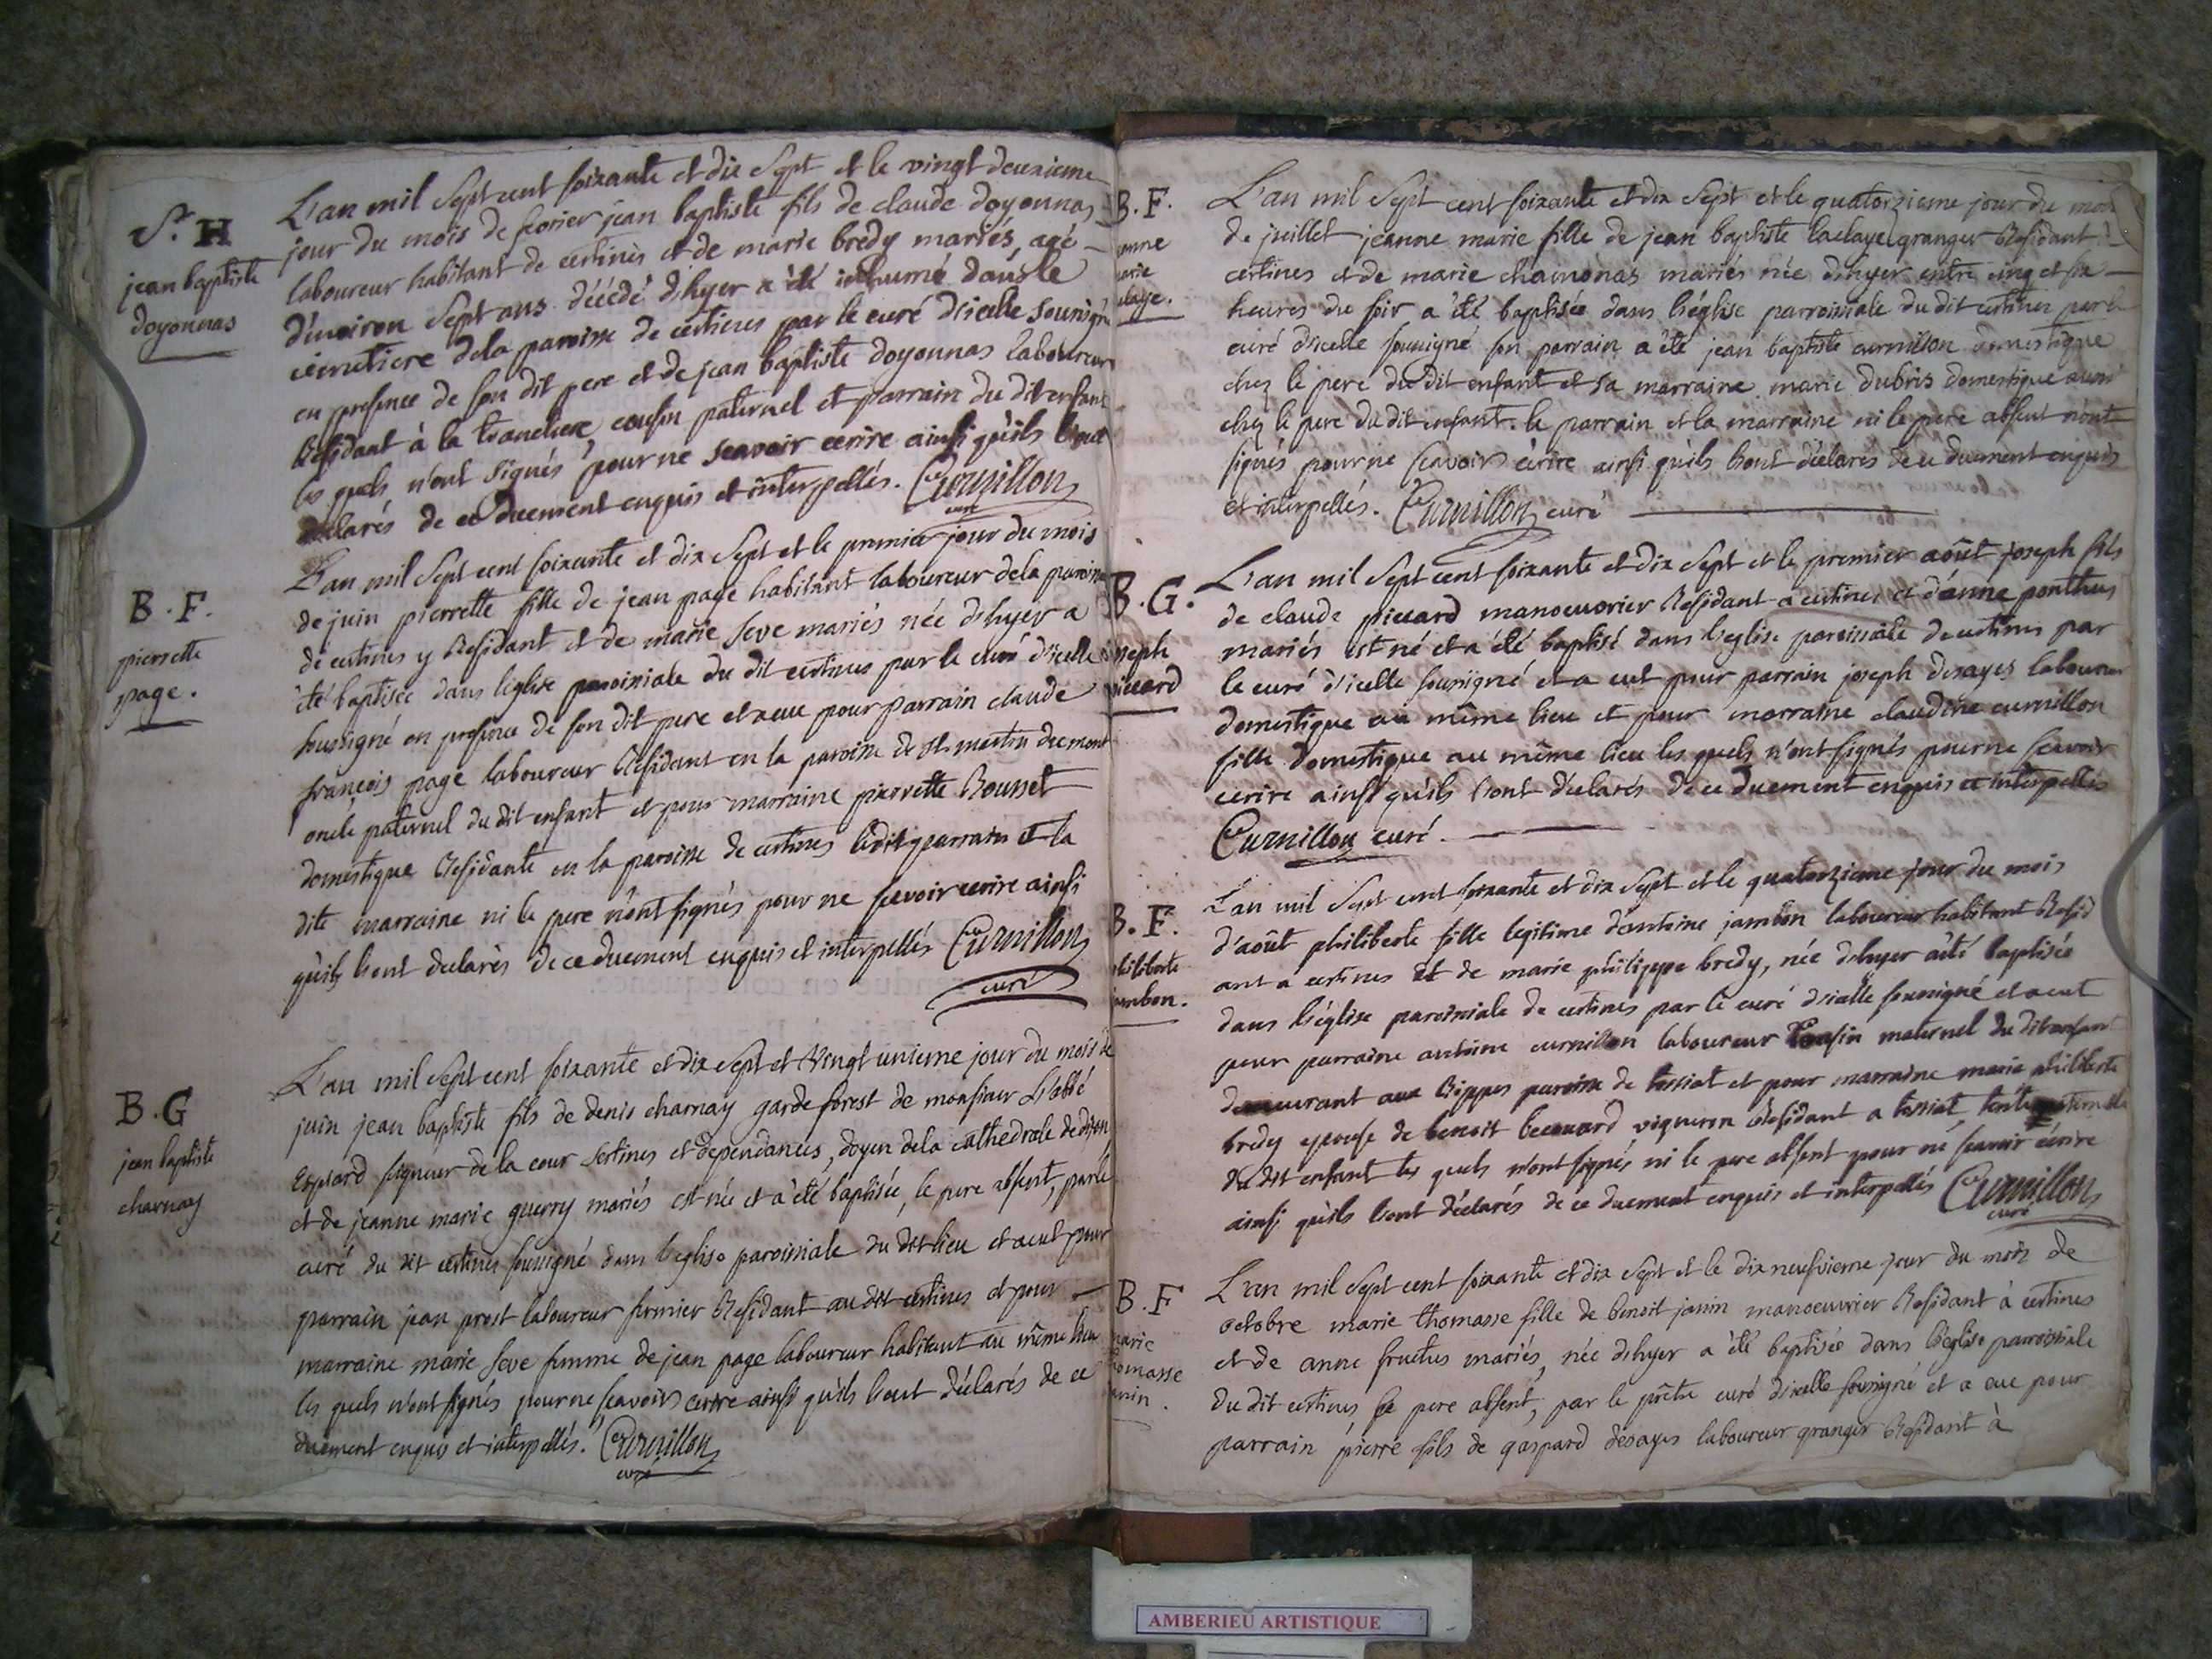 St. H
jean baptiste
doyonnas
L'an mil sept cent soixante et dix sept et le vingt deuxieme
jour du mois de fevrier jean baptiste fils de claude doyonnas
laboureur habitant de certines et de marie bredy mariés, agé
d'environ sept ans décédé d'hyer a été inhumé dans le
cimetiere dela paroisse de certines par le curé d'icelle soussigné
en presence de son dit pere et de jean baptiste doyonnas laboureur
Résidant à la trancliere, cousin paternel et parrain du dit enfant
les quels n'ont signés pour ne scavoir ecrire ainsi qu'ils l'ont
déclarés de ce duement enquis et interpellés. Curnillon
curé
B. F.
pierrette
page.
L'an mil sept cent soixante et dix sept et le premier jour du mois
de juin pierrette fille de jean page habitant laboureur dela paroisse
de certines y Résidant et de marie seve mariés née d'hyer a
été baptisée dans l'église paroissiale du dit certines par le curé d'icelle
soussigné en presence de son dit pere et a eue pour parrain claude
françois page laboureur Résidant en la paroisse de st. martin du mont
oncle paternel du dit enfant et pour marraine pierrette Rousset
domestique Résidante en la paroisse de certines ledit parrain et la
dite marraine ni le pere n'ont signés pour ne scavoir ecrire ainsi
qu'ils l'ont declarés de ce duement enquis et interpellés Curnillon
curé
B. G
jean baptiste
charnay
L'an mil sept cent soixante et dix sept et vingt unieme jour du mois de
juin jean baptiste fils de denis charnay garde forest de monsieur L'abbé
Espiard seigneur de la cour Certines et dependances, doyen dela cathedrale de dijon
et de jeanne marie guerry mariés est née et a été baptisée, le pere absent, par le
curé du dit certines soussigné dans l'eglise paroissiale du dit lieu et a eut pour
parrain jean prost laboureur fermier Résidant au dit certines et pour
marraine marie seve femme de jean page laboureur habitant au même lieu
les quels n'ont signés pour ne scavoir ecrire ainsi qu'ils l'ont déclarés de ce
duement enquis et interpellés. Curnillon
curé
B. F.
L'an mil sept cent soixante et dix sept et le quatorzieme jour du mois
de juillet jeanne marie fille de jean baptiste laclaye granger Résidant à
certines et de marie chamonas mariés née d'hyer entre cinq et six
heures du soir a été baptisée dans l'église parroissiale du dit certines par le
curé d'icelle soussigné son parrain a été jean baptiste curnillon domestique
chez le pere du dit enfant et sa marraine marie dubris domestique aussi
chez le pere du dit enfant. le parrain et la marraine ni le pere absent n'ont
signés pour ne scavoir écrire ainsi qu'ils l'ont déclarés de ce duement enquis
et interpellés. Curnillon curé
B. G.
joseph
piccard
L'an mil sept cent soixante et dix sept et le premier août joseph fils
de claude piccard manoeuvrier Résidant a certines et d'anne ponthus
mariés est né et a été baptisé dans l'eglise paroissiale de certines par
le curé d'icelle soussigné et a eut pour parrain joseph desayes laboureur
domestique au même lieu et pour marraine claudine curnillon
fille domestique au même lieu les quels n'ont signés pour ne scavoir
ecrire ainsi qu'ils l'ont déclarés de ce duement enquis et interpellés
Curnillon curé.
B. F.
philiberte
jambon.
L'an mil sept cent soixante et dix sept et le quatorzieme jour du mois
d'août philiberte fille legitime d'antoine jambon laboureur habitant Résid
ant a certines et de marie philippe bredy, née d'hyer a été baptisée
dans l'église paroissiale de certines par le curé d'icelle soussigné et a eut
pour parraine antoine curnillon laboureur Cousin maternel du dit enfant
demeurant aux Rippes paroisse de tossiat et pour marraine marie philiberte
bredy epouse de benoit vigneron Résidant a tossiat, tante maternelle
du dit enfant les quels n'ont signés ni le pere absent pour ne scavoir écrire
ainsi qu'ils l'ont déclarés de ce duement enquis et interpellés Curnillon
curé
B. F
marie
thomasse
janin.
L'an mil sept cent soixante et dix sept et le dix neufvieme jour du mois de
octobre marie thomasse fille de benoit janin manoeuvrier Résidant à certines
et de anne fructus mariés, née d'hyer a été baptisée dans l'église parroissiale
du dit certines le pere absent, par le prêtre curé d'icelle soussigné et a eue pour
parrain pierre fils de gaspard désayes laboureur granger Résidant à
AMBERIEU ARTISTIQUE